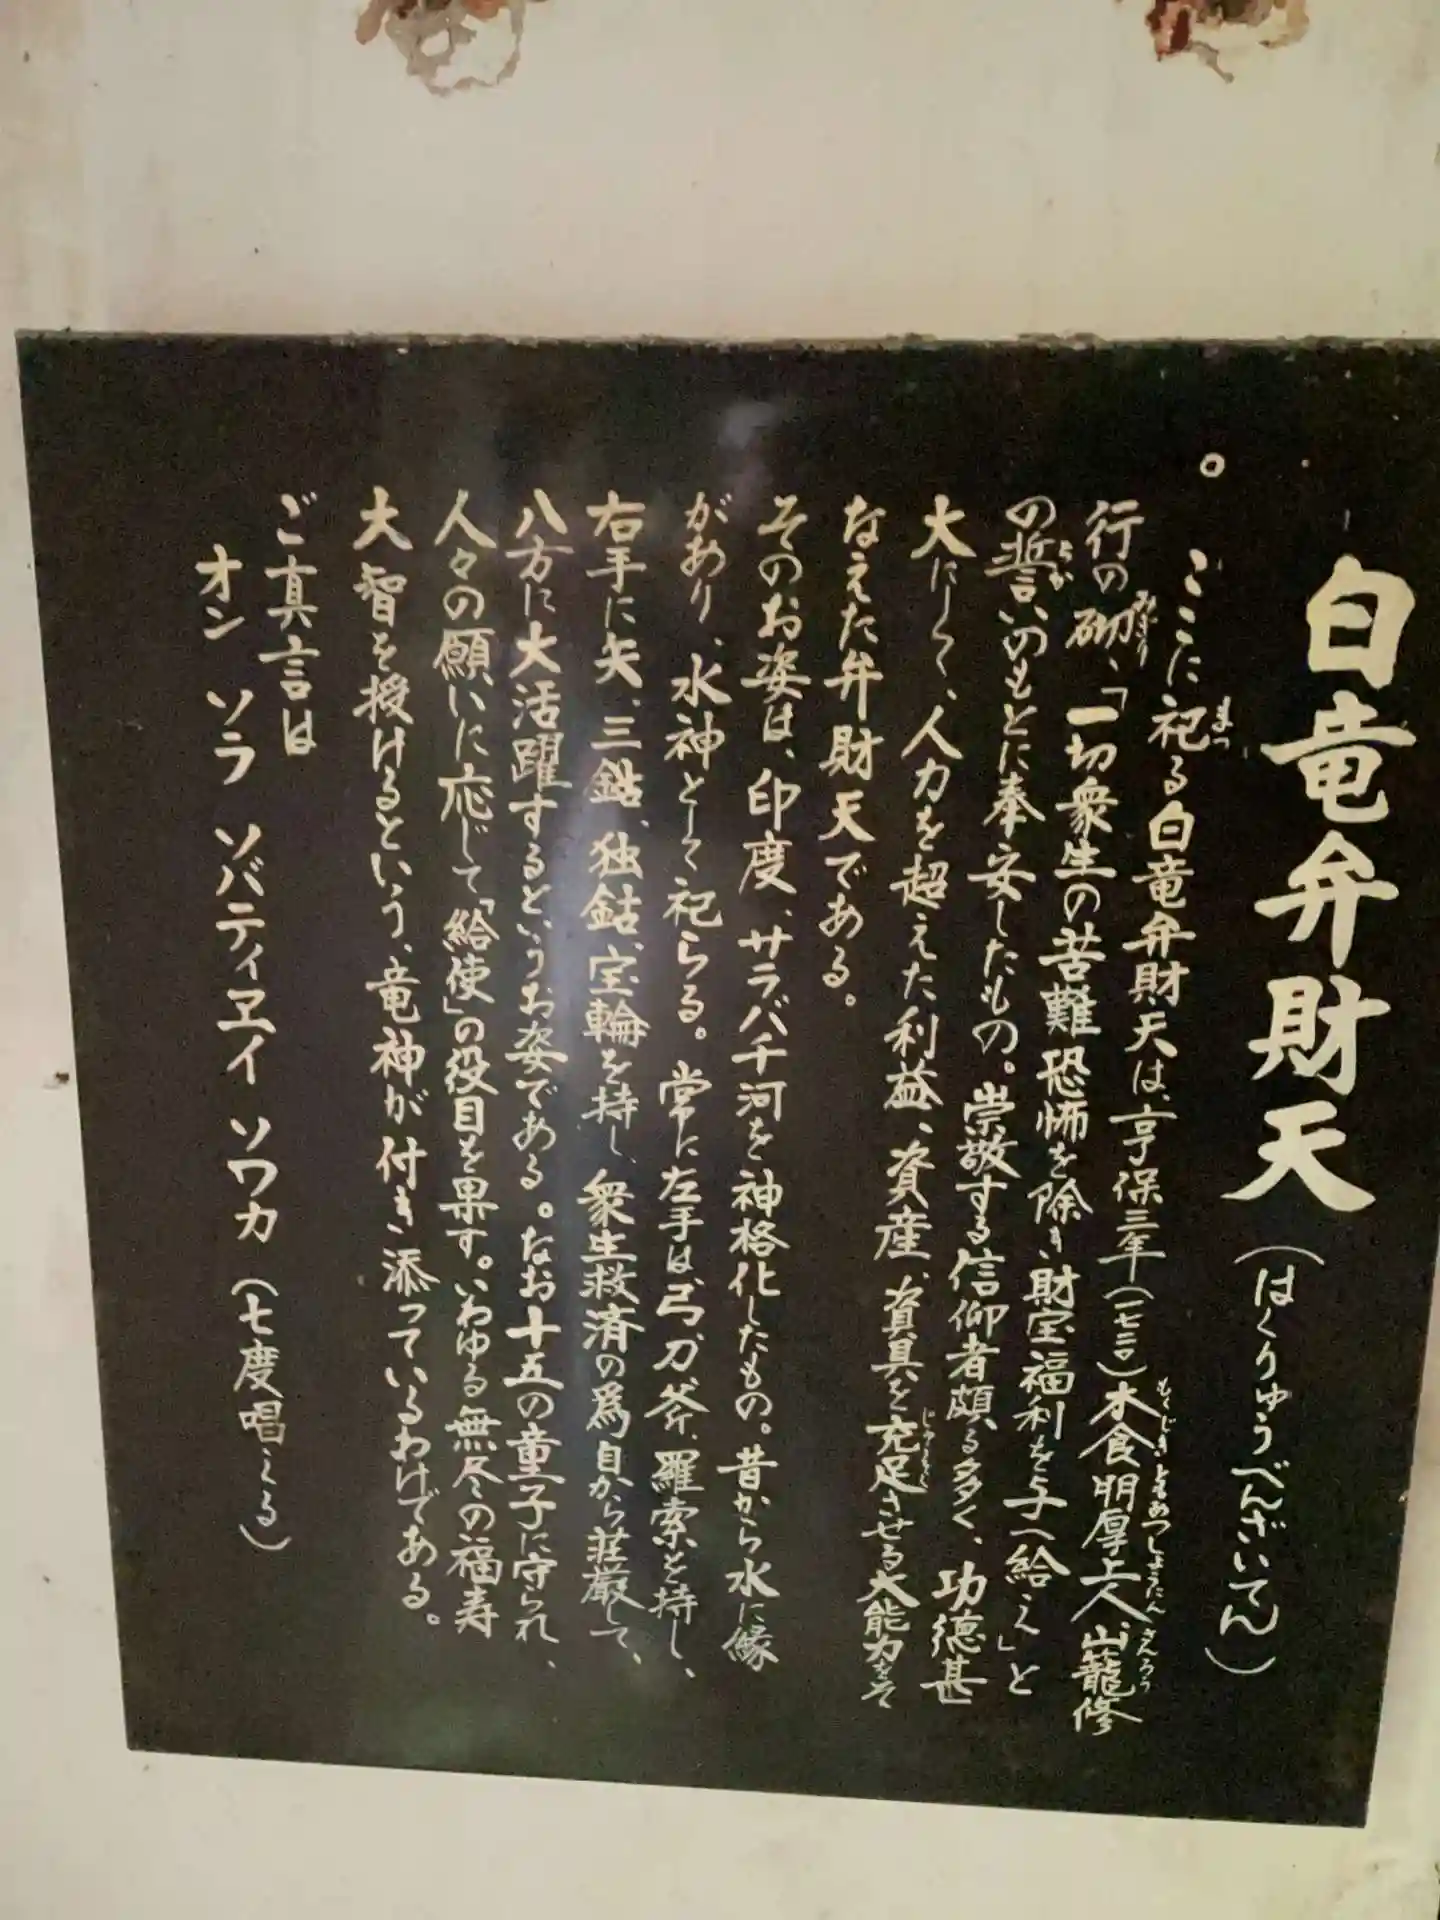 白竜弁財天（はくりゅうべんざいてん）
ここに祀る白竜弁財天は、享保三年（一七二〇）木食明厚上人、山籠修
行の砌、「一切衆生の苦難恐怖を除き財宝福利を与へ給え」と
の誓いのもとに奉安したもの。崇敬する信仰者頗る多く、功徳甚
大にして、人力を超えた利益、資産、資具を充足させる大能力をそ
なえた弁財天である。
そのお姿は、印度、サラバチ河を神格化したもの。昔から水に縁
があり、水神として祀らる。常に左手は、弓、刀、斧、羅索を持し、
右手に矢、三鈷、独鈷、宝輪を持し、衆生救済の為自から荘厳して、
八方に大活躍するというお姿である。なお十五の童子に守られ、
人々の願いに応じて「給使」の役目を果す。いわゆる無尽の福寿
大智を授けるという、竜神が付き添っているわけである。
ご真言は
オン ソラ ソバティヱイ ソワカ（七度唱える）